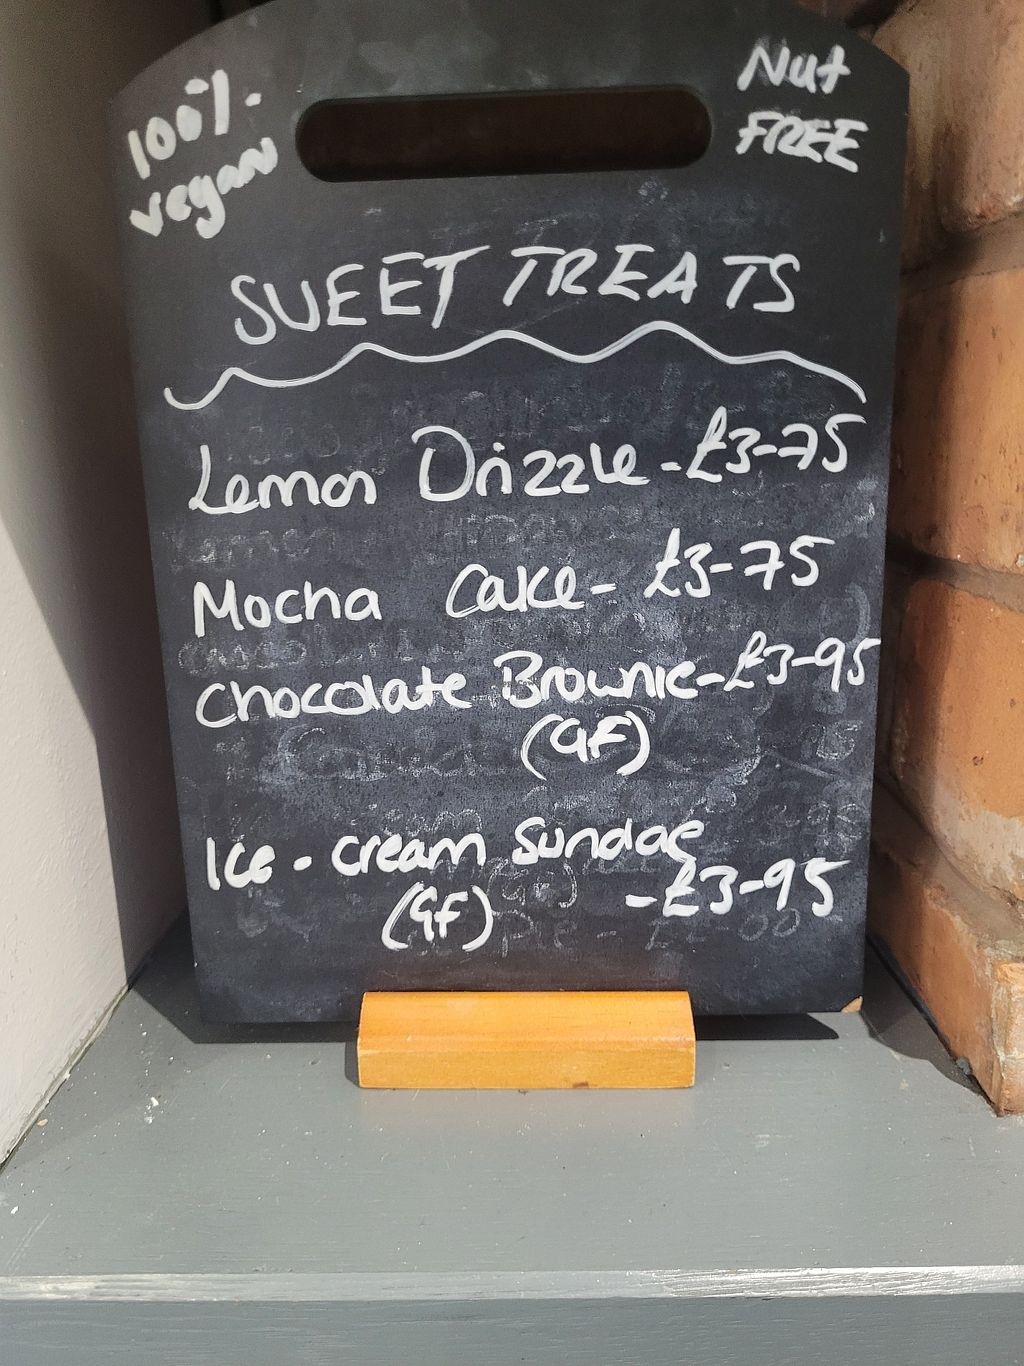 100%
vegan
Nut
FREE
SWEET TREATS
Lemon Drizzle - £3-75
Mocha Cake - £3-75
Chocolate Brownie - £3-95
(GF)
Ice - cream Sundae
(GF) - £3-95